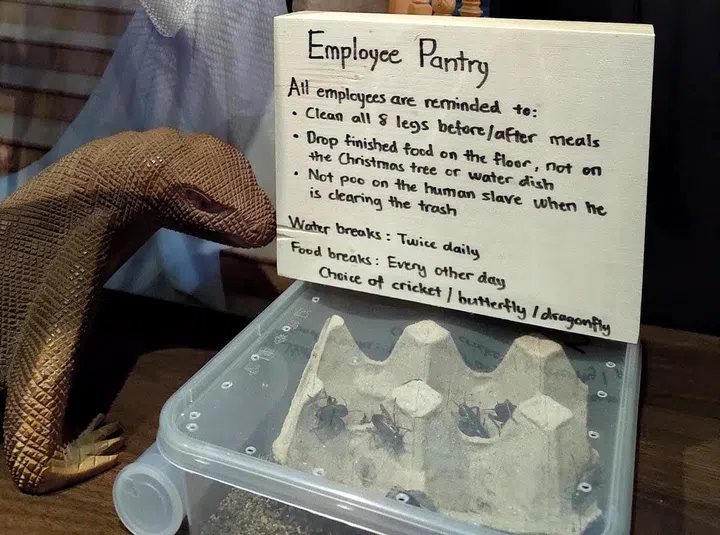 Employee Pantry
All employees are reminded to:
• Clean all 8 legs before/after meals
• Drop finished food on the floor, not on
the Christmas tree or water dish
• Not poo on the human slave when he
is clearing the trash
Water breaks: Twice daily
Food breaks: Every other day
Choice of cricket / butterfly / dragonfly